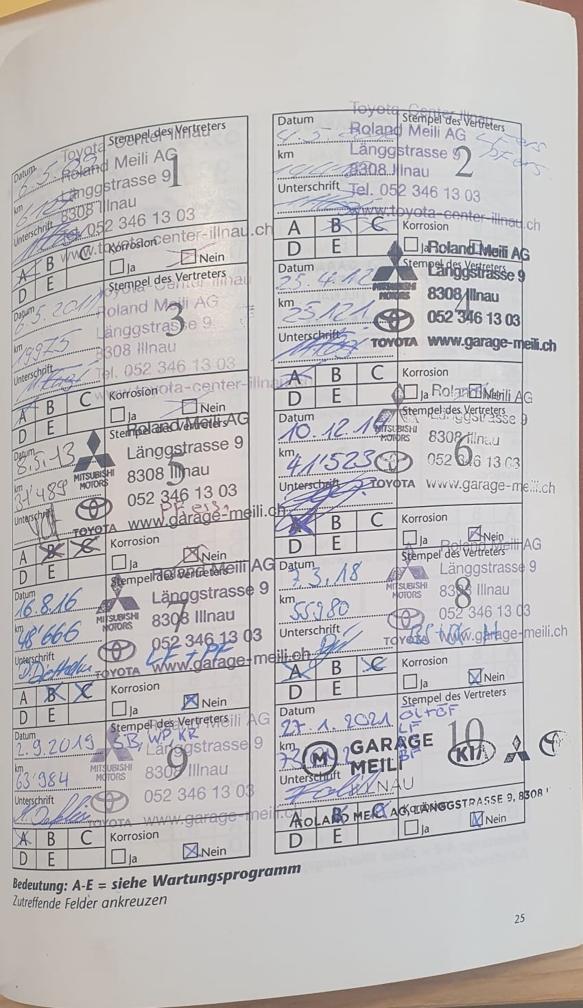 Datum
Stempel des Vertreters
Toyota
Roland Meili AG
Länggstrasse 9
km
8308 Illnau
1
Unterschrift
052 346 13 03
www.toyota-center-illnau.ch
A B C Korrosion
D E Ja Nein
Datum
Stempel des Vertreters
Toyota
Roland Meili AG
km
Länggstrasse 9
8308 Illnau
2
Unterschrift
Tel. 052 346 13 03
www.toyota-center-illnau.ch
A B C Korrosion
D E Ja
Datum
6.5.2011
Stempel des Vertreters
Roland Meili AG
Länggstrasse 9
km
3
8308 Illnau
Unterschrift
Tel. 052 346 13 03
www.toyota-center-illnau
A B C Korrosion
D E Ja Nein
Datum
25.4.12
Stempel des Vertreters
Roland Meili AG
Länggstrasse 9
km
25121
MITSUBISHI MOTORS
8308 Illnau
Unterschrift
052 346 13 03
TOYOTA
www.garage-meili.ch
A B C Korrosion
D E Ja
Datum
8.5.13
Stempel des Vertreters
Roland Meili AG
Länggstrasse 9
km
MITSUBISHI MOTORS
8308 Illnau
5
Unterschrift
052 346 13 03
TOYOTA
www.garage-meili.ch
A B C Korrosion
D E Ja Nein
Datum
Stempel des Vertreters
Roland Meili AG
Länggstrasse 9
km
41'523
MITSUBISHI MOTORS
8308 Illnau
6
Unterschrift
052 346 13 03
TOYOTA
www.garage-meili.ch
A B C Korrosion
D E Ja Nein
Datum
16.8.16
Stempel des Vertreters
Roland Meili AG
Länggstrasse 9
km
48'666
MITSUBISHI MOTORS
8308 Illnau
7
Unterschrift
052 346 13 03
LF + PF
TOYOTA
www.garage-meili.ch
A B C Korrosion
D E Ja Nein
Datum
7.3.18
Stempel des Vertreters
Roland Meili AG
Länggstrasse 9
km
55980
MITSUBISHI MOTORS
8308 Illnau
8
Unterschrift
052 346 13 03
TOYOTA
www.garage-meili.ch
A B C Korrosion
D E Ja Nein
Datum
2.9.2019
Stempel des Vertreters
SB, WP KR
Meili AG
Länggstrasse 9
km
63'984
MITSUBISHI MOTORS
8308 Illnau
9
Unterschrift
052 346 13 03
TOYOTA
www.garage-meili.ch
A B C Korrosion
D E Ja Nein
Datum
27.1.2021
Stempel des Vertreters
LF
BF
km
10
M GARAGE MEILI
KIA
Unterschrift
ILLNAU
ROLAND MEILI AG, LÄNGGSTRASSE 9, 8308
A B C
D E Ja Nein
Bedeutung: A-E = siehe Wartungsprogramm
Zutreffende Felder ankreuzen
25